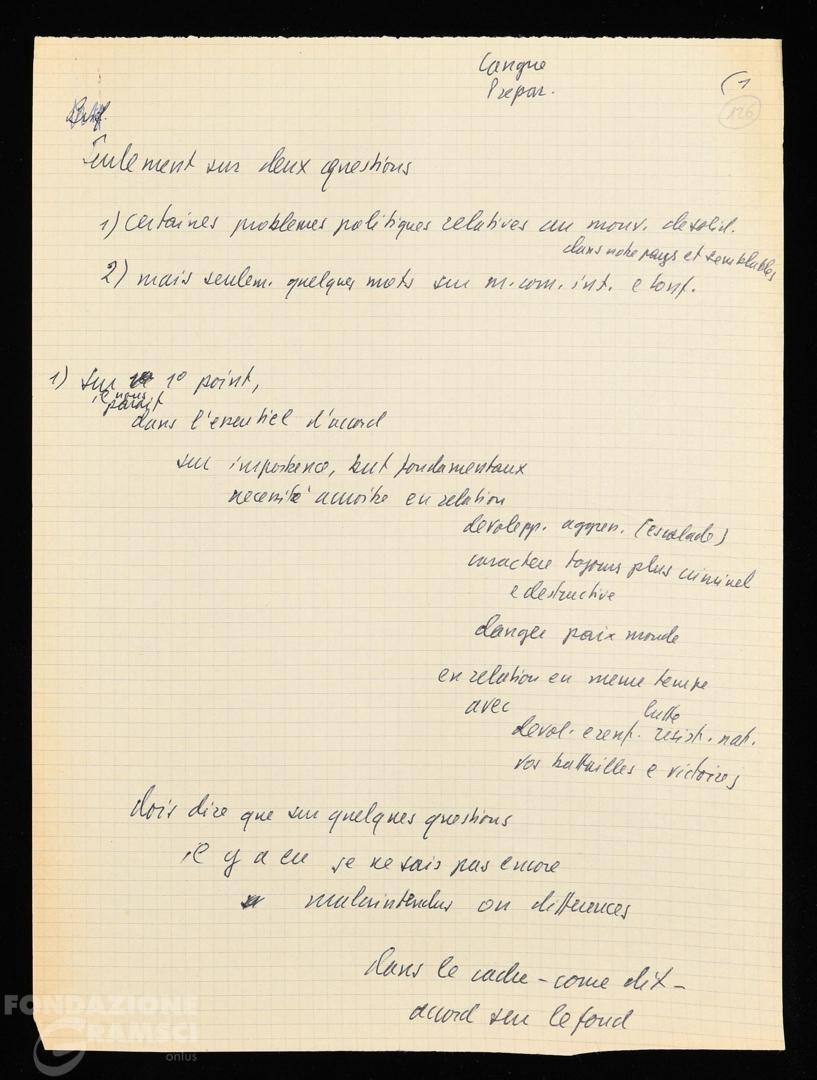 Langue
Prepar.
(1
126
Seulement sur deux questions
1) certaines problemes politiques relatives au mouv. de solid.
dans notre pays et semblables
2) mais seulem. quelques mots sur m. com. int. e conf.
1) sur 1° point,
il nous
parait
dans l'essentiel d'accord
sur importence, but fondamentaux
necessité accroitre en relation
developp. aggres. (escalade)
caractere tojours plus criminel
e destructive
danger paix monde
en relation en meme temps
avec
lutte
devol. e renf. resist. nat.
vos battailles e victoires
dois dire que sur quelques questions
il y a eu je ne sais pas encore
malintendus ou differences
dans le cadre - come dit -
accord sur le fond
FONDAZIONE
GRAMSCI
onlus